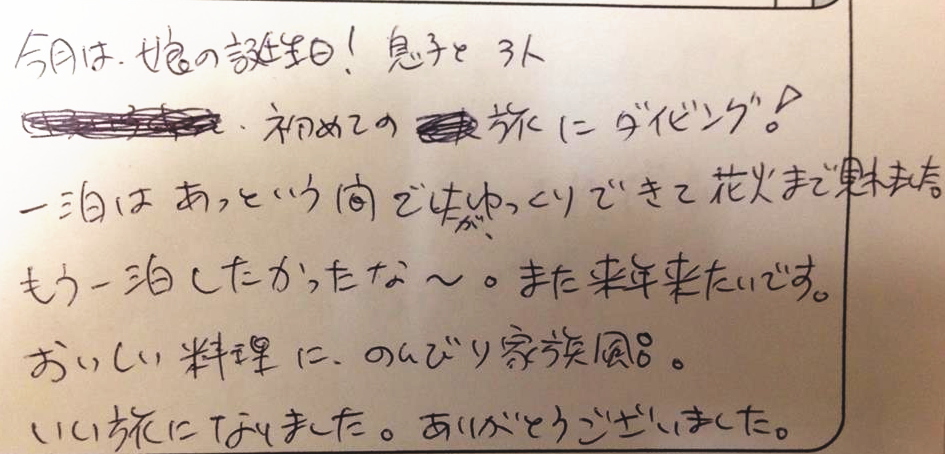 今月は、娘の誕生日！ 息子と 3人
、初めての 旅に ダイビング！
一泊は あっという間でしたが、ゆっくりできて 花火まで 見れました。
もう一泊したかったな〜。また来年来たいです。
おいしい料理に、のんびり家族風呂。
いい旅になりました。ありがとうございました。